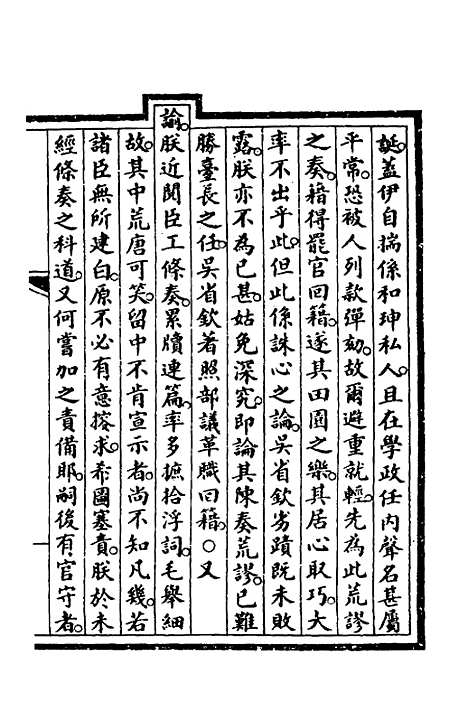 誕。蓋伊自揣係和珅私人。且在學政任內聲名甚屬
平常。恐被人列款彈劾。故爾避重就輕。先為此荒謬
之奏。藉得罷官回籍。遂其田園之樂。其居心取巧。大
率不出乎此。但此係誅心之論。吳省欽劣蹟既未敗
露。朕亦不為已甚。姑免深究。即論其陳奏荒謬。已難
勝臺長之任。吳省欽着照部議革職回籍。○又
諭。朕近閱臣工條奏。累牘連篇。率多摭拾浮詞。毛舉細
故。其中荒唐可笑。留中不肯宣示者。尚不知凡幾。若
諸臣無所建白。原不必有意搜求。希圖塞責。朕於未
經條奏之科道。又何嘗加之責備耶。嗣後有官守者。